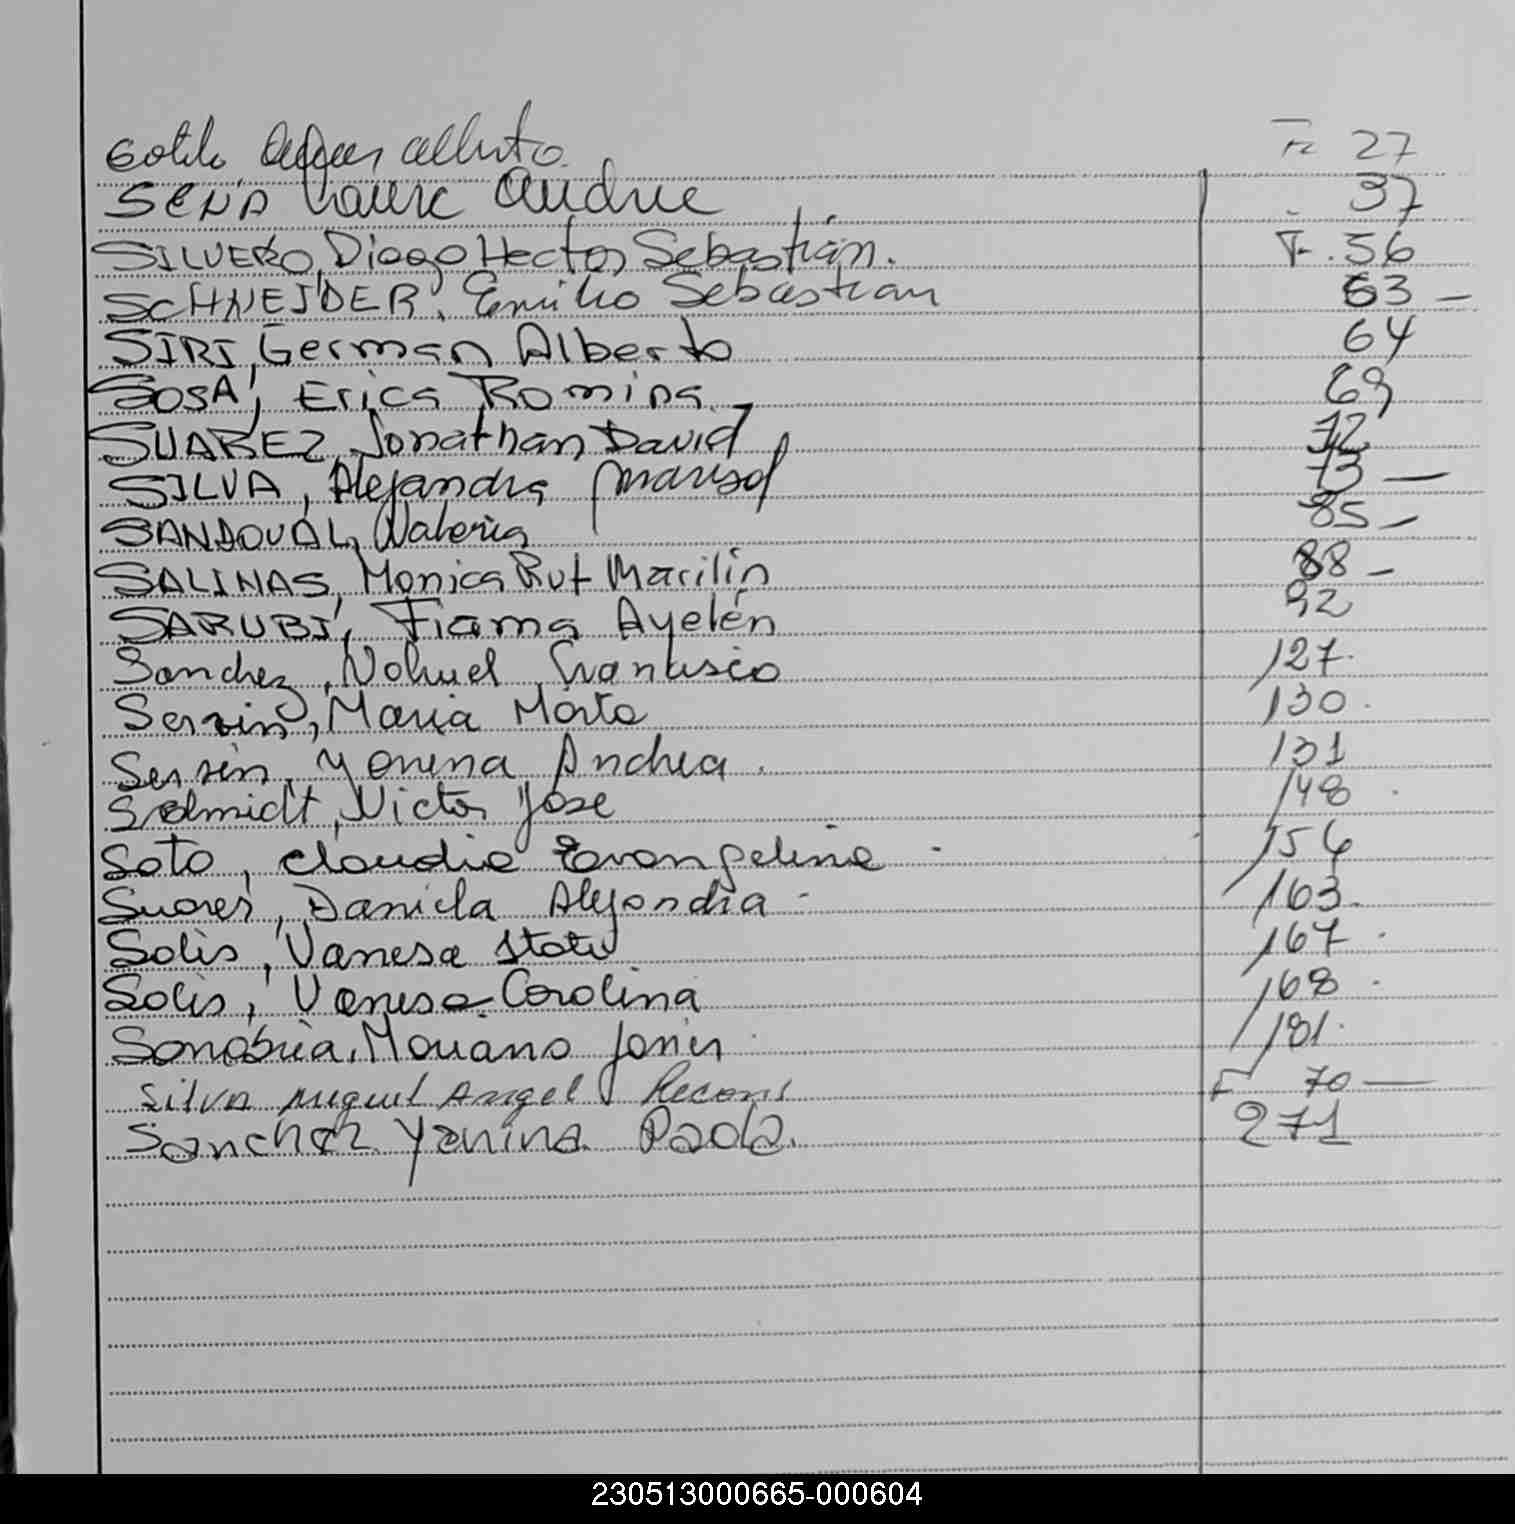 Sotelo Alberto F: 27
SENA Laura Andrea 37
SILVERO, Diego Hector Sebastián. F. 56
SCHNEIDER, Emilio Sebastian 63 —
SIRI, German Alberto 64
SOSA, Erica Romina 69
SUAREZ, Jonathan David 72
SILVA, Alejandra Marisol 73 —
SANDOVAL, Valeria 85 —
SALINAS, Monica Rut Marilin 88 —
SARUBI, Fiama Ayelén 92
Sanchez, Nahuel Francisco 127.
Servin, Maria Marta 130.
Servin, Yanina Andrea. 131
Schmidt, Victor Jose 148
Soto, Claudia Evangelina 154
Suarez, Daniela Alejandra 163.
Solis, Vanesa 167
Solis, Vanesa Carolina 168
Sanabria, Mariano Javier 181.
Silva Miguel Angel F 70 —
Sanchez Yanina Paola. 271
230513000665-000604